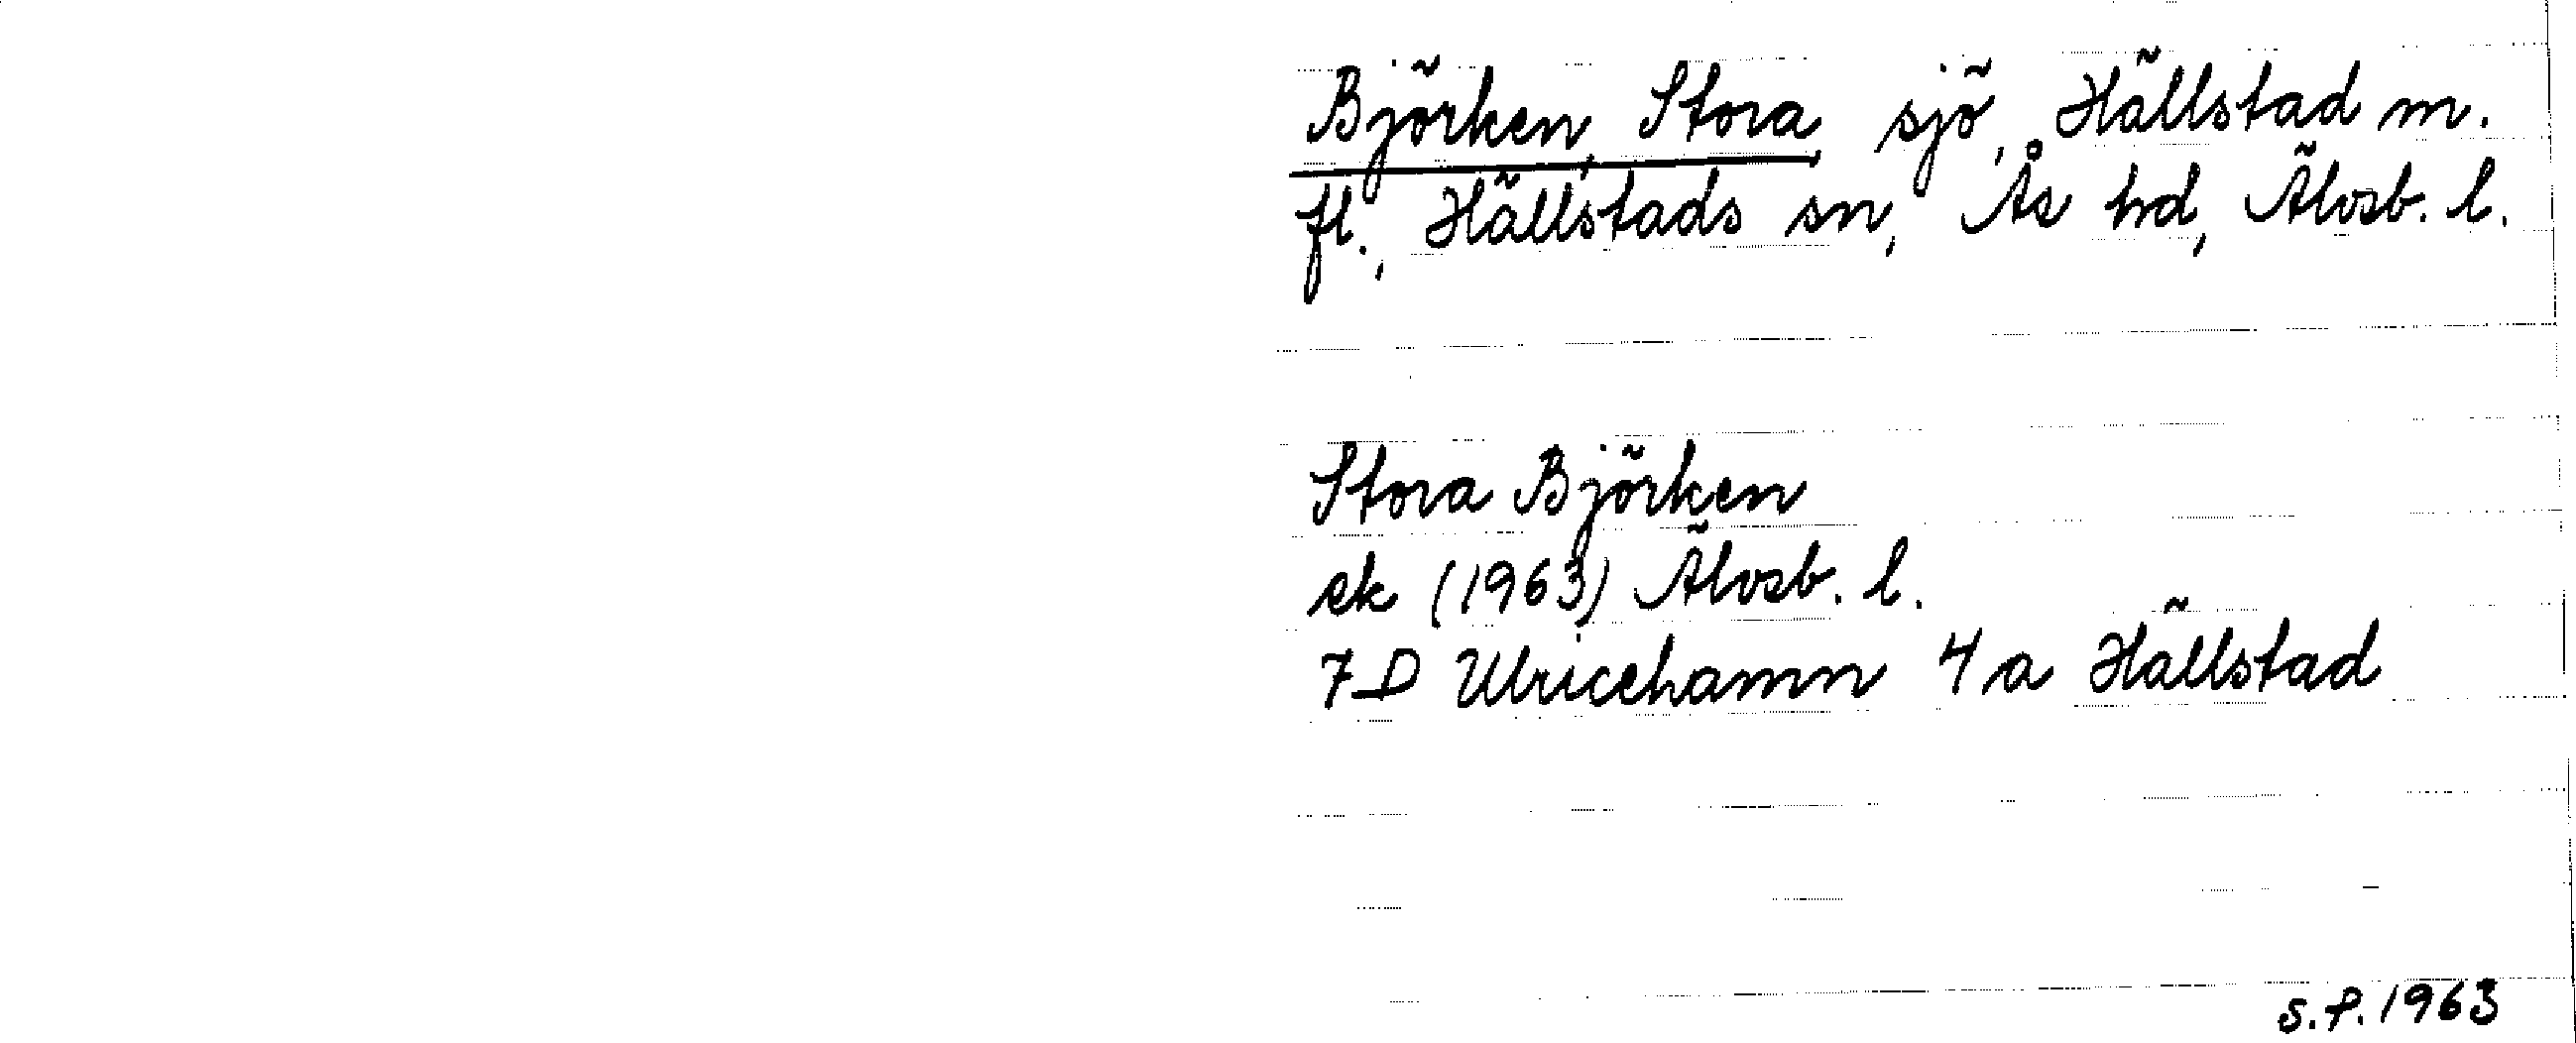 Björken, Stora, sjö, Hällstad m.
fl., Hällstads sn, Ås hd, Älvsb. l.
Stora Björken
ek (1963) Älvsb. l.
7D Ulricehamn 4a Hällstad
S.P. 1963